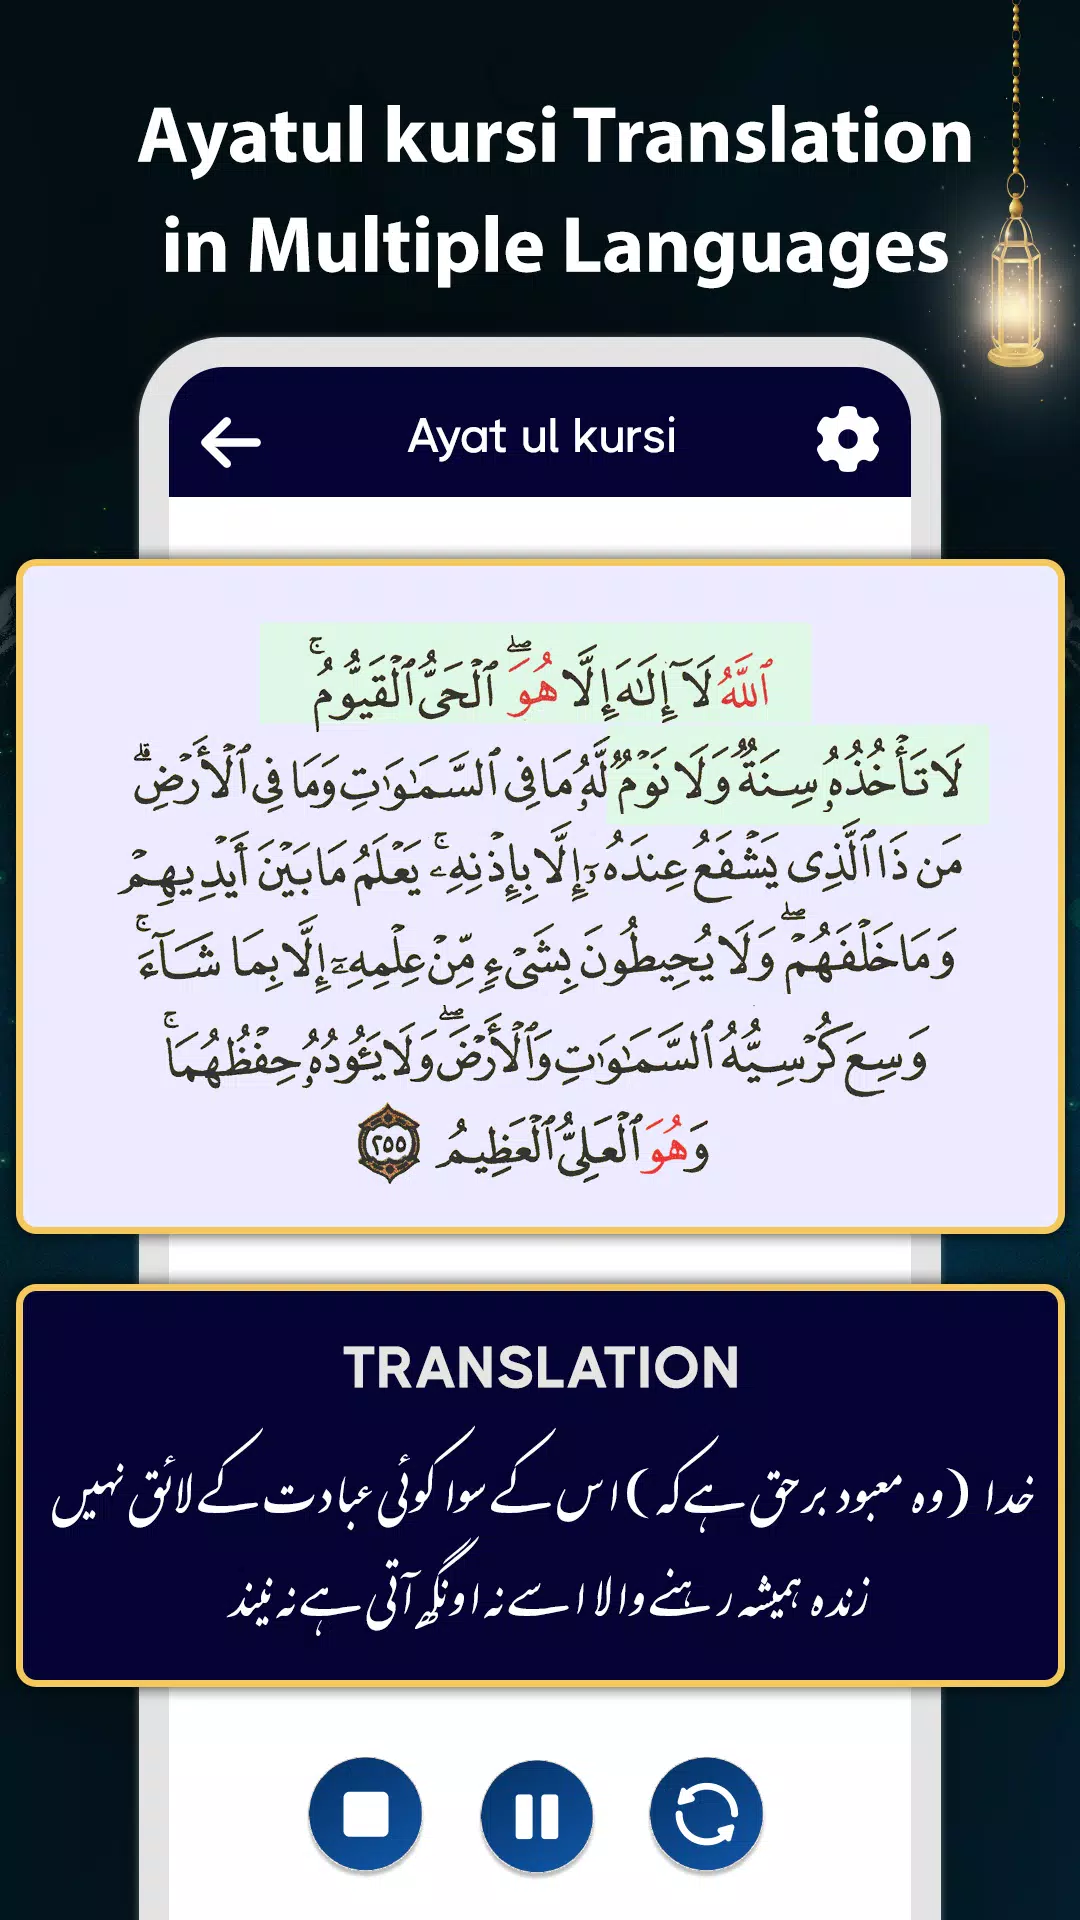 Ayatul kursi Translation
in Multiple Languages
Ayat ul kursi
ٱللَّهُ لَآ إِلَـٰهَ إِلَّا هُوَ ۖ ٱلْحَىُّ ٱلْقَيُّومُ ۚ
لَا تَأْخُذُهُۥ سِنَةٌ وَلَا نَوْمٌ لَّهُۥ مَا فِى ٱلسَّمَـٰوَٰتِ وَمَا فِى ٱلْأَرْضِ ۗ
مَن ذَا ٱلَّذِى يَشْفَعُ عِندَهُۥٓ إِلَّا بِإِذْنِهِۦ ۚ يَعْلَمُ مَا بَيْنَ أَيْدِيهِمْ
وَمَا خَلْفَهُمْ ۖ وَلَا يُحِيطُونَ بِشَىْءٍ مِّنْ عِلْمِهِۦٓ إِلَّا بِمَا شَآءَ ۚ
وَسِعَ كُرْسِيُّهُ ٱلسَّمَـٰوَٰتِ وَٱلْأَرْضَ ۖ وَلَا يَـُٔودُهُۥ حِفْظُهُمَا ۚ
وَهُوَ ٱلْعَلِىُّ ٱلْعَظِيمُ ٢٥٥
TRANSLATION
خدا (وہ معبود برحق ہے کہ) اس کے سوا کوئی عبادت کے لائق نہیں
زندہ ہمیشہ رہنے والا اسے نہ اونگھ آتی ہے نہ نیند